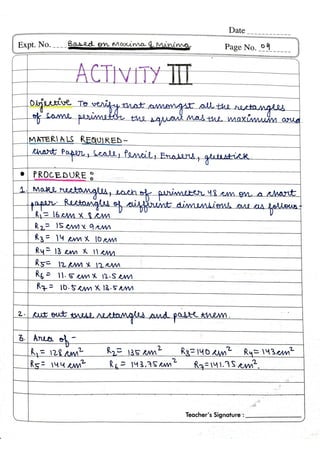 Date
Expt. No. Based on Maxima & Minima
Page No. 09
ACTIVITY III
Objective To verify that amongst all the rectangles
of same perimeter the square has the maximum area
MATERIALS REQUIRED-
Chart Paper, Scale, Pencil, Erasers, gluestick
• PROCEDURE :
1. Make rectangles, each of perimeter 48 cm on a chart
paper Rectangles of different dimensions are as follows-
R1= 16 cm X 8 cm
R2= 15 cm X 9 cm
R3= 14 cm X 10 cm
R4= 13 cm X 11 cm
R5= 12 cm X 12 cm
R6= 11.5 cm X 12.5 cm
R7= 10.5 cm X 13.5 cm
2. Cut out these rectangles and paste them.
3. Area of -
R1= 128 cm² R2= 135 cm² R3=140 cm² R4= 143 cm²
R5= 144 cm² R6= 143.75 cm² R7=141.75 cm².
Teacher's Signature :